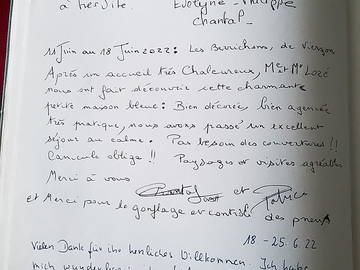 à Herlite. Evelyne - Philippe
Chantal -
11 Juin au 18 Juin 2022 : Les Berrichons, de Vierzon
Après un accueil très Chaleureux, Mme et Mr Lozé
nous ont fait découvrir cette charmante
petite maison bleue : Bien décorée, bien agencée
très pratique, nous avons passé un excellent
séjour au calme. Pas besoin des couvertures !!
Canicule oblige !! Paysages et visites agréables
Merci à vous
et Patrice
et Merci pour le gonflage et contrôle des pneus
18 - 25. 6. 22
Vielen Dank für ihr herzliches Willkommen. Ich habe
mich wunderbar